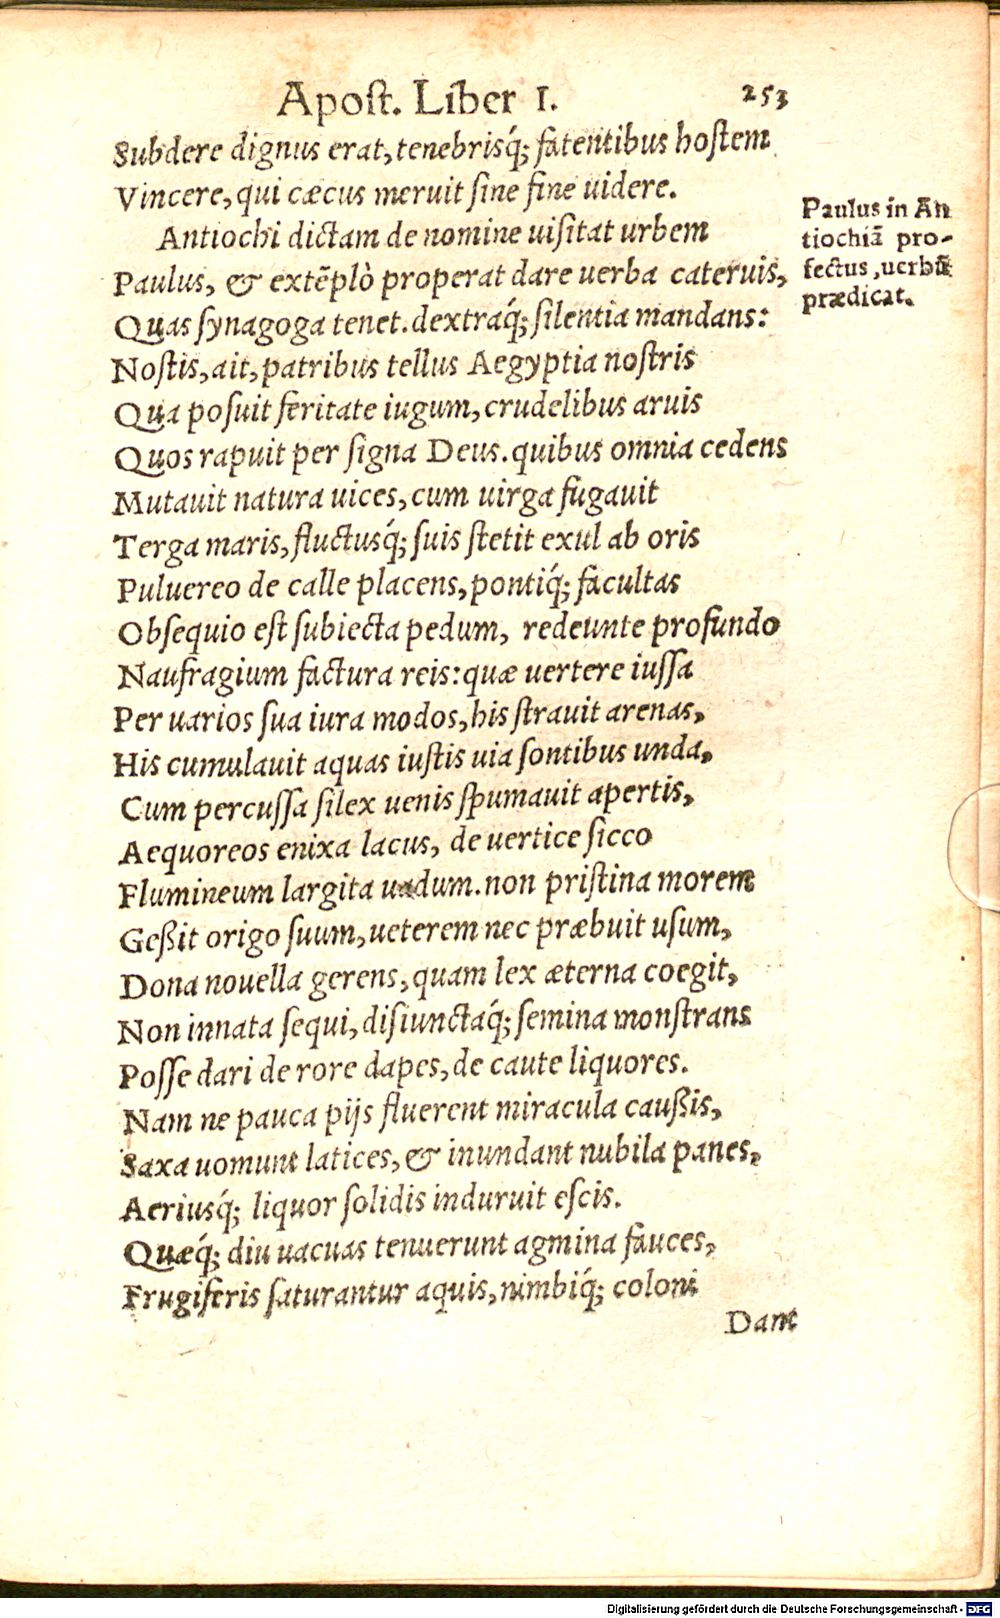 Apost. Liber I. 253
Subdere dignus erat, tenebrisq́; fatentibus hostem
Vincere, qui cæcus meruit sine fine uidere.
Antiochi dictam de nomine uisitat urbem
Paulus, & extẽplò properat dare uerba cateruis,
Quas synagoga tenet. dextraq́; silentia mandans:
Nostis, ait, patribus tellus Aegyptia nostris
Qua posuit feritate iugum, crudelibus aruis
Quos rapuit per signa Deus. quibus omnia cedens
Mutauit natura uices, cum uirga fugauit
Terga maris, fluctusq́; suis stetit exul ab oris
Puluereo de calle placens, pontiq́; facultas
Obsequio est subiecta pedum, redeunte profundo
Naufragium factura reis: quæ uertere iussa
Per uarios sua iura modos, his strauit arenas,
His cumulauit aquas iustis uia sontibus unda,
Cum percussa silex uenis spumauit apertis,
Aequoreos enixa lacus, de uertice sicco
Flumineum largita uadum. non pristina morem
Geßit origo suum, ueterem nec præbuit usum,
Dona nouella gerens, quam lex æterna coegit,
Non innata sequi, disiunctaq́; semina monstrans
Posse dari de rore dapes, de caute liquores.
Nam ne pauca pijs fluerent miracula caußis,
Saxa uomunt latices, & inundant nubila panes,
Aeriusq́; liquor solidis induruit escis.
Quæq́; diu uacuas tenuerunt agmina fauces,
Frugiferis saturantur aquis, nimbiq́; coloni
Dant
Paulus in An
tiochiā pro-
fectus, uerbū
prædicat.
Digitalisierung gefördert durch die Deutsche Forschungsgemeinschaft - DFG